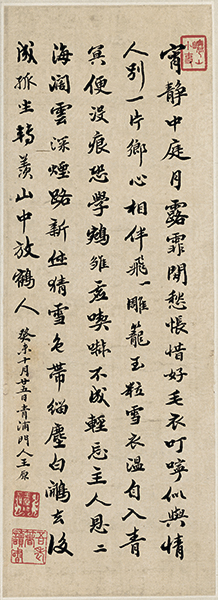 宵静中庭月露霏閒愁悵惜好毛衣叮嚀似與情
人別一片鄉心相伴飛一雕籠玉粒雪衣温自入青
冥便没痕恐學鵷雛虛喫嚇不成輕忘主人恩二
海濶雲深煙路新任猜雪色帶緇塵白鷴去後
成孤坐轉羨山中放鶴人癸未十月廿五日青浦門人王原